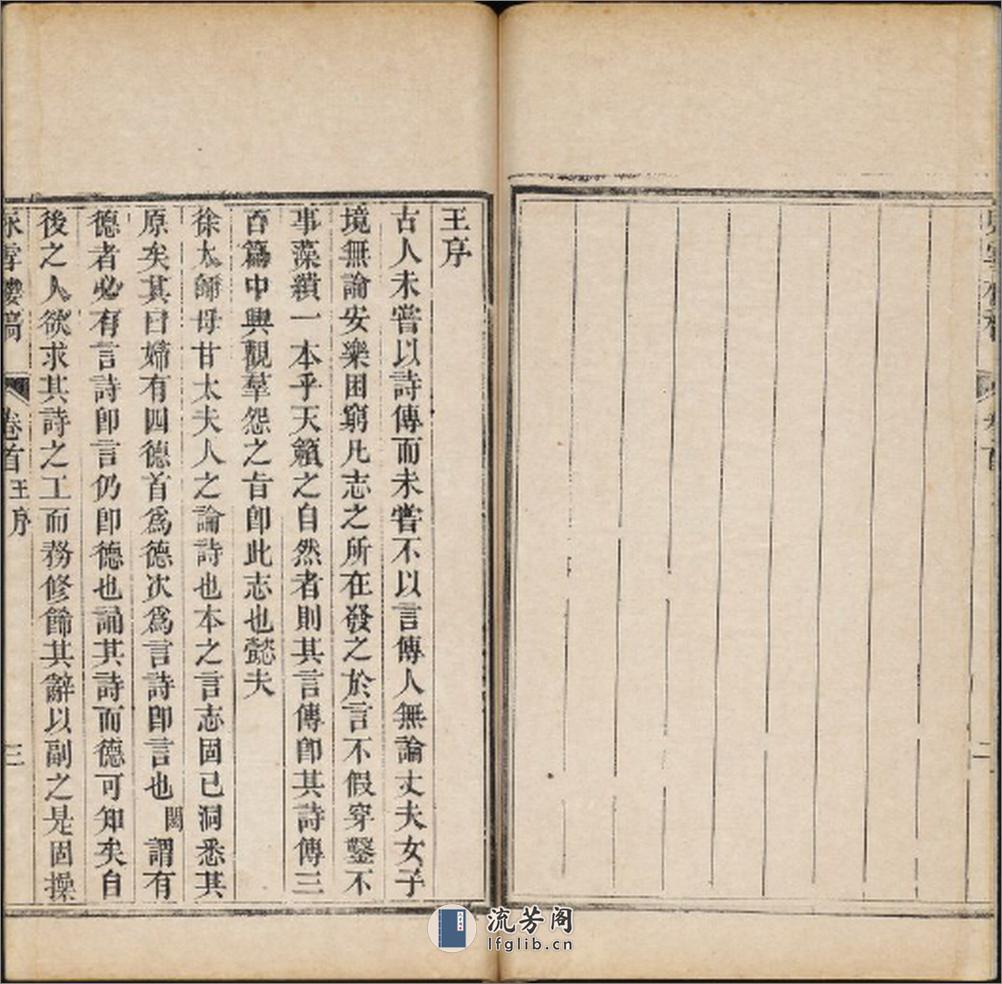 王序
古人未嘗以詩傳而未嘗不以言傳人無論丈夫女子
境無論安樂困窮凡志之所在發之於言不假穿鑿不
事藻繢一本乎天籟之自然者則其言傳卽其詩傳三
百篇中興觀羣怨之旨卽此志也懿夫
徐太師母甘太夫人之論詩也本之言志固已洞悉其
原矣其曰婦有四德首爲德次爲言詩卽言也闓謂有
德者必有言詩卽言仍卽德也誦其詩而德可知矣自
後之人欲求其詩之工而務修飾其辭以副之是固操
詠雪樓稿 卷首 王序 三
二
流芳阁
lfglib.cn